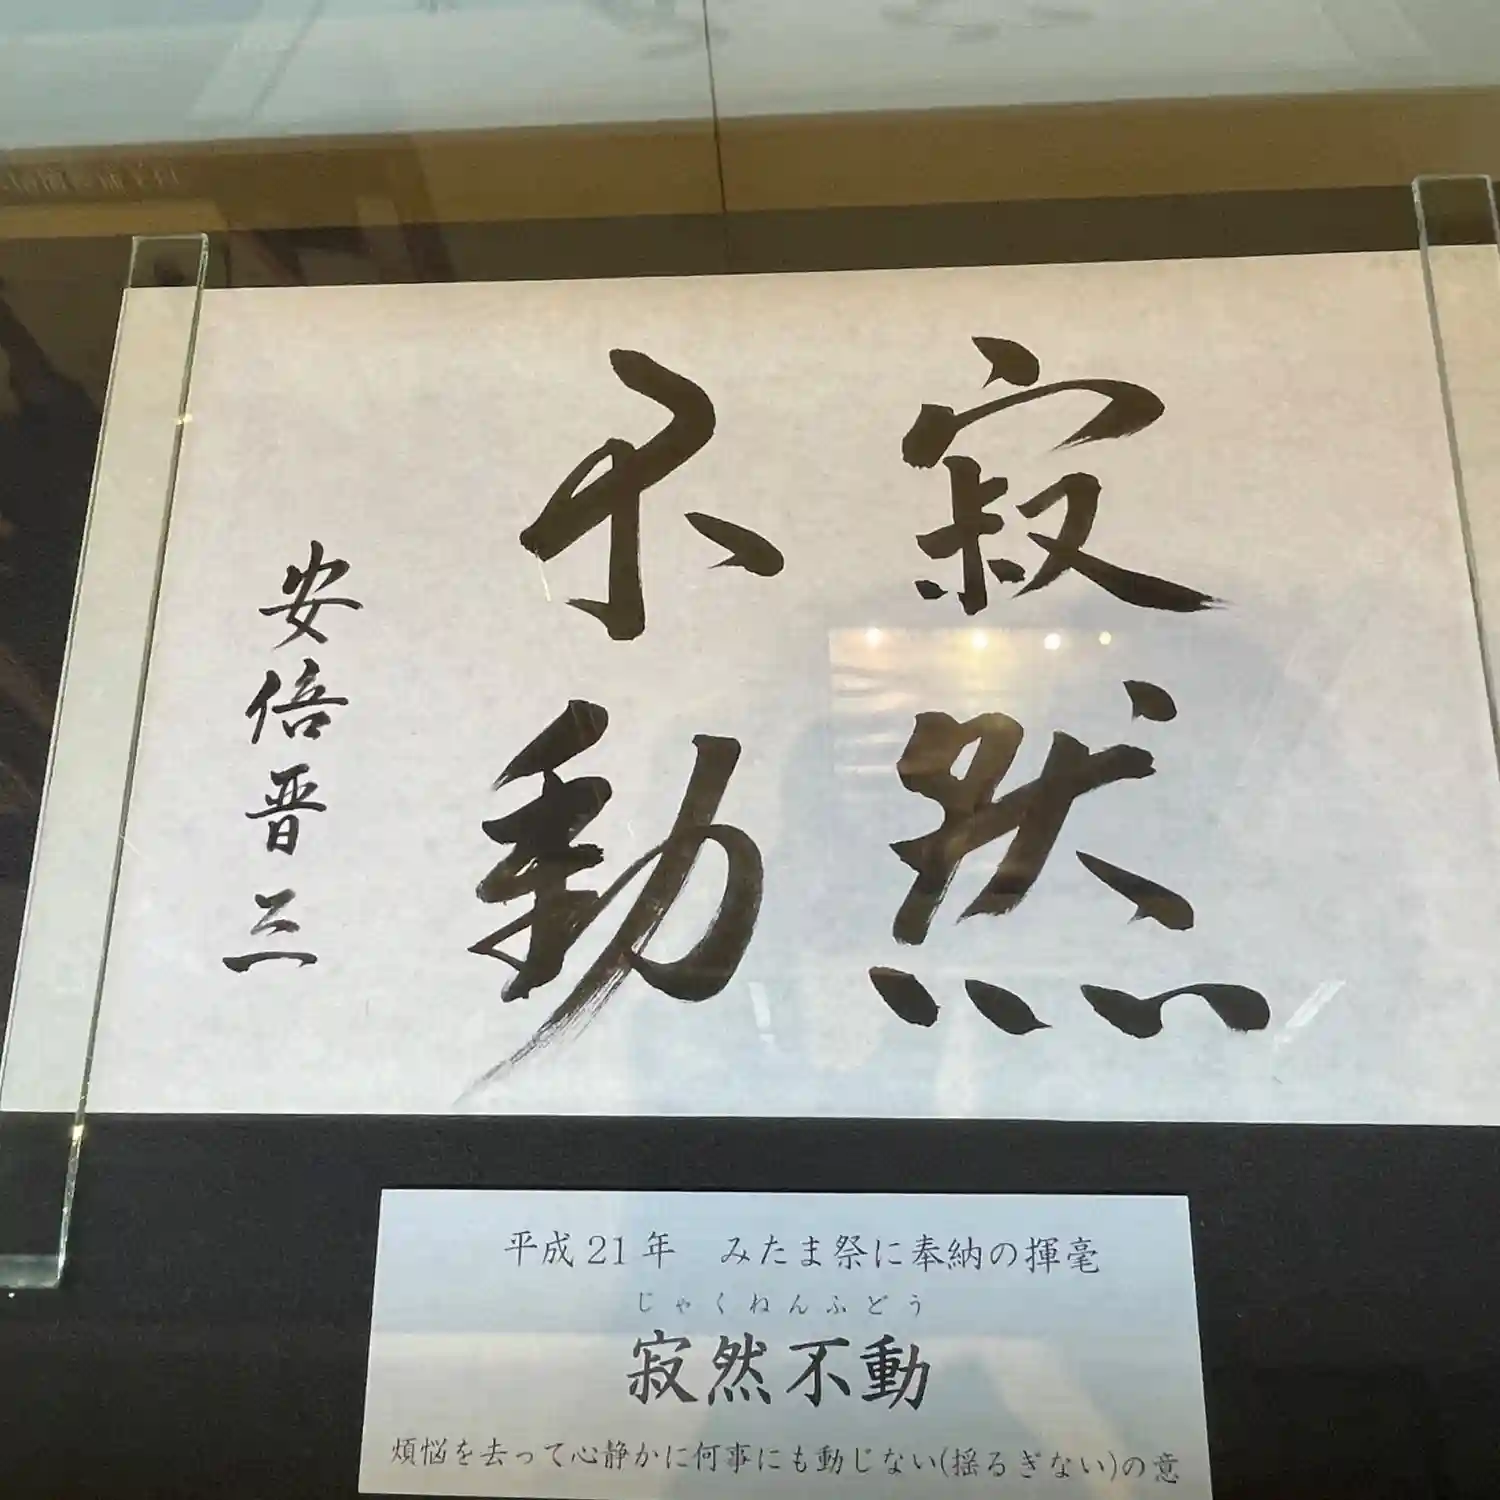 寂然
不動
安倍晋三
平成21年 みたま祭に奉納の揮毫
じゃくねんふどう
寂然不動
煩悩を去って心静かに何事にも動じない(揺るぎない)の意